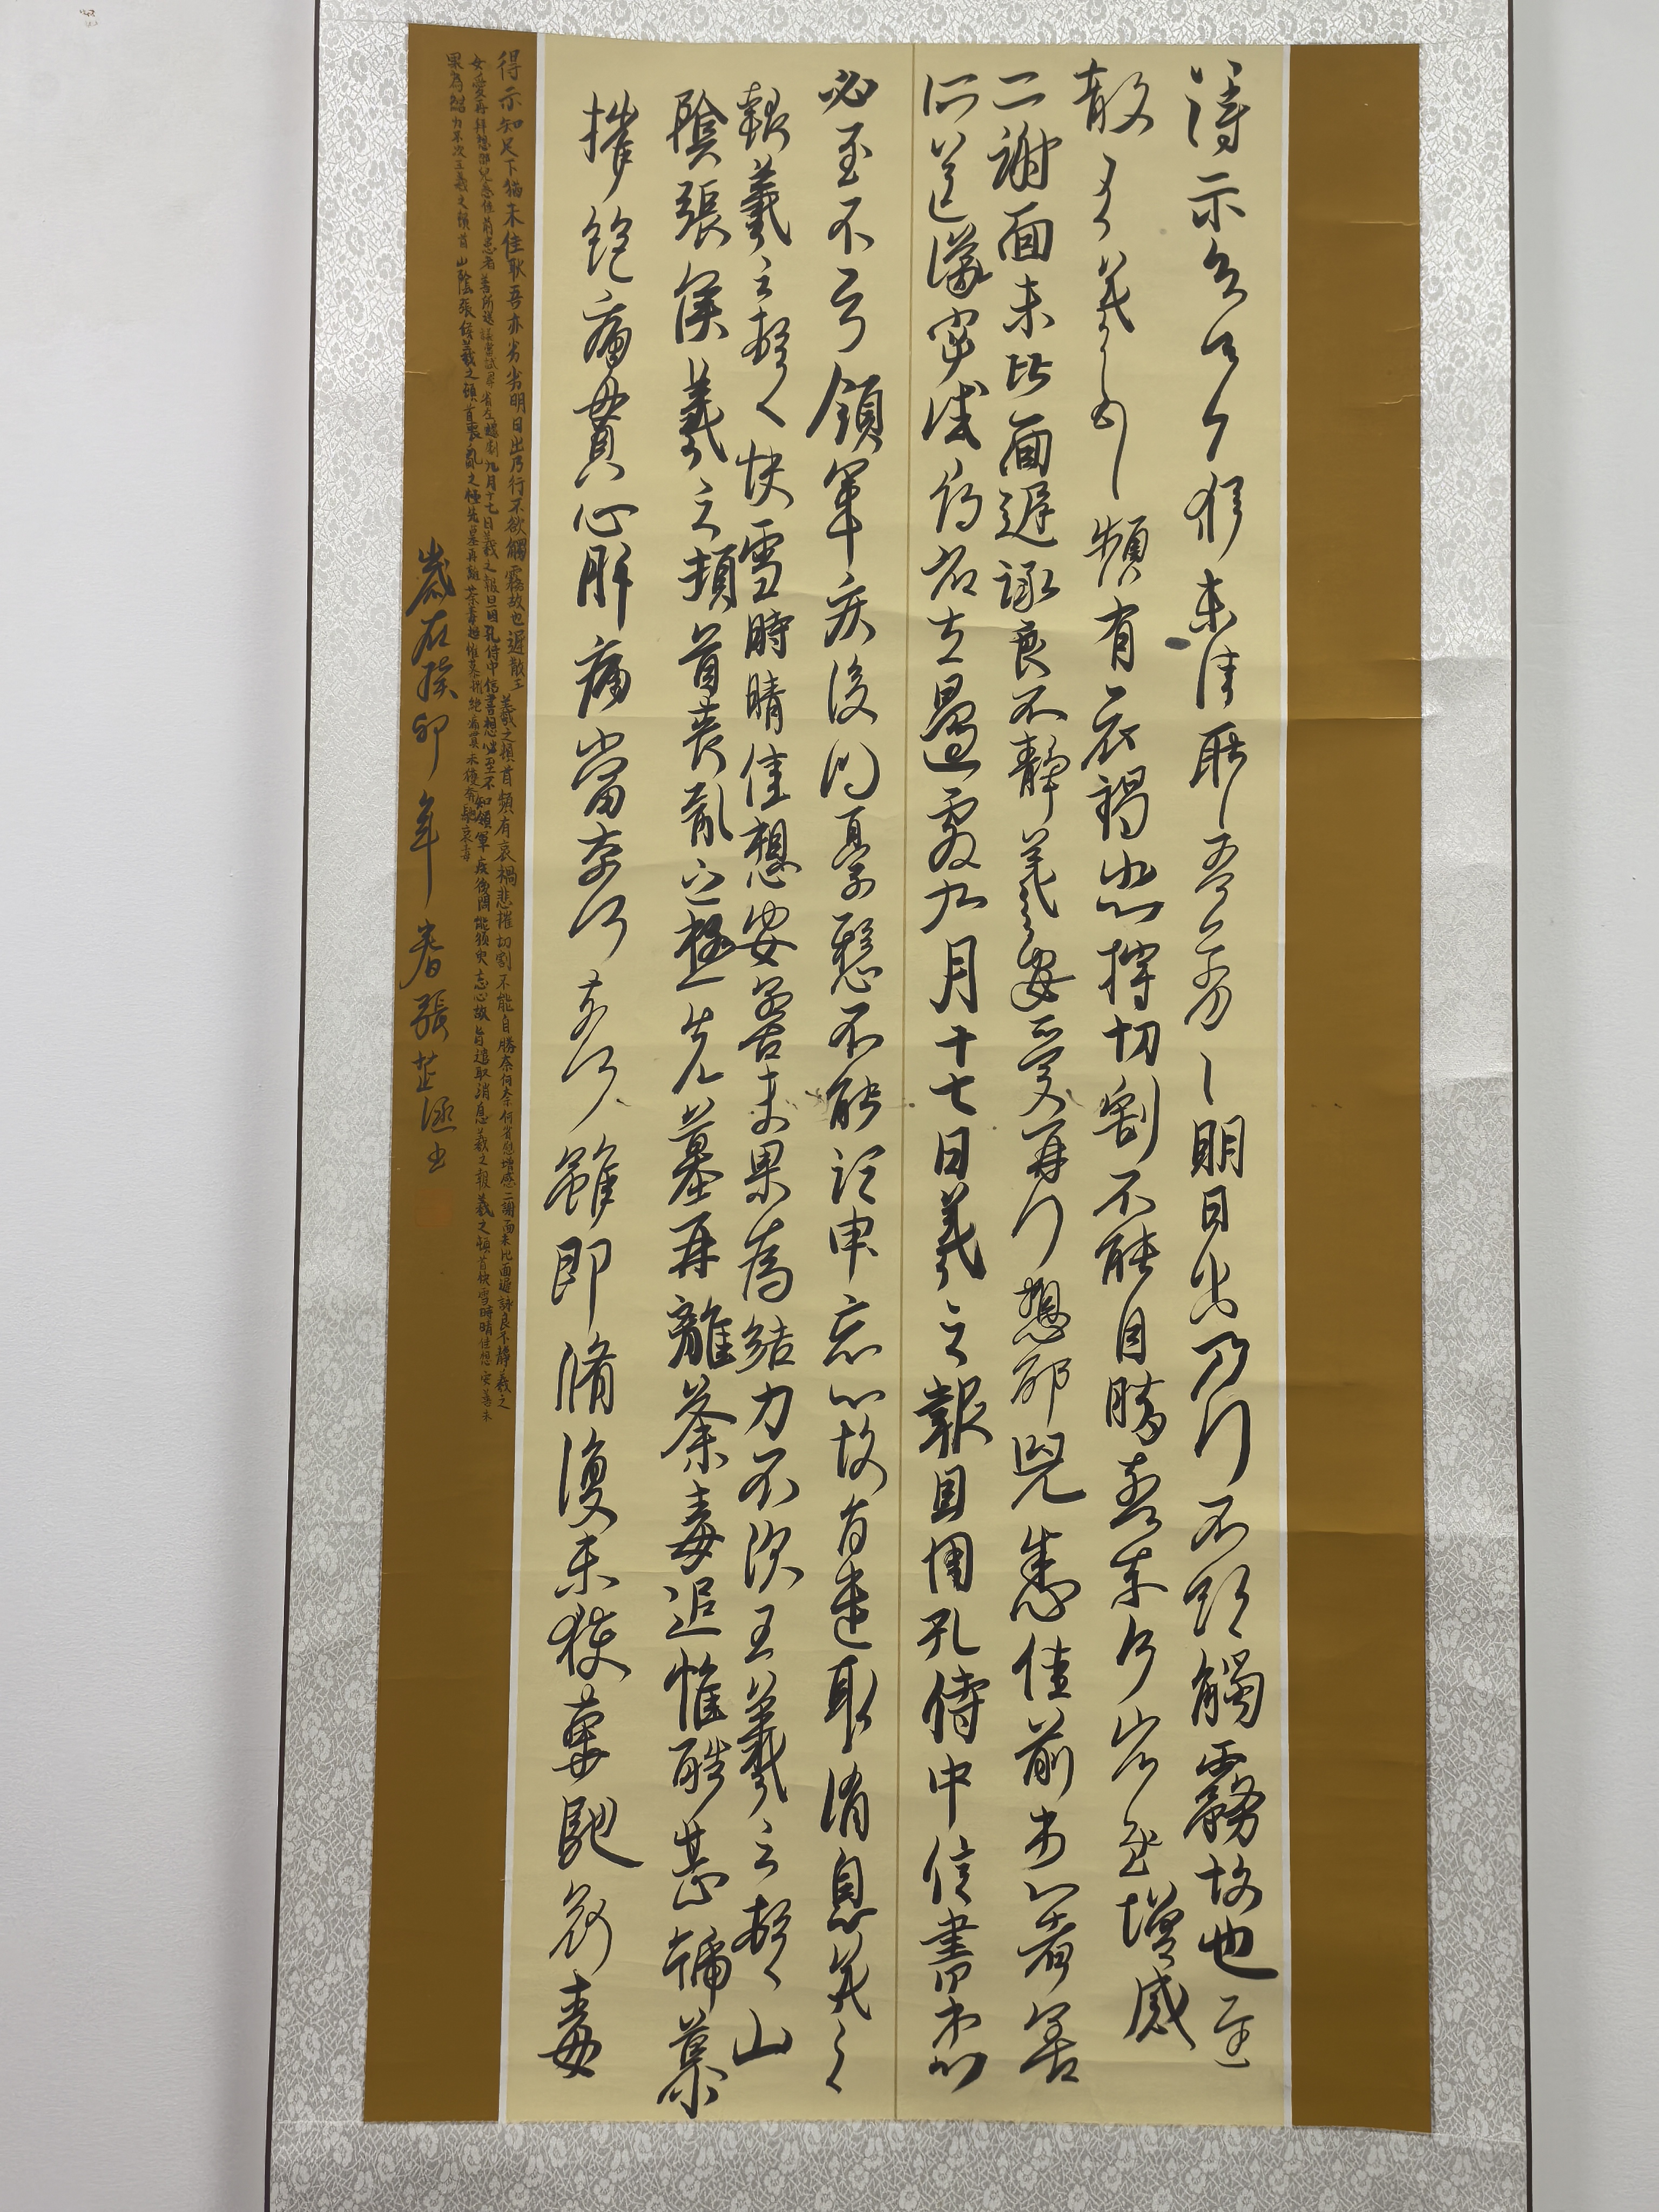 得示知足下猶未佳耿耿吾亦劣劣明日出乃行不欲觸霧故也遲
散王羲之頓首頻有哀禍悲摧切割不能自勝奈何奈何省慰增感
二謝面未比面遲詠良不靜羲之女愛再拜想邵兒悉佳前患者善
所送議當試尋省左邊劇九月十七日羲之報且因孔侍中信書想
必至不知領軍疾後問憂懸不能須臾忘心故旨遣取消息羲之
報羲之頓首快雪時晴佳想安善未果為結力不次王羲之頓首山
陰張侯羲之頓首喪亂之極先墓再離荼毒追惟酷甚號慕
摧絕痛貫心肝痛當奈何奈何雖即脩復未獲奔馳哀毒
得示知足下猶未佳耿吾亦劣劣明日出乃行不欲觸霧故也遲散王羲之頓首頻有哀禍悲摧切割不能自勝奈何奈何省慰增感二謝面未比面遲詠良不靜羲之
女愛再拜想邵兒悉佳前患者善所送議當試尋省左邊劇九月十七日羲之報且因孔侍中信書想必至不知領軍疾後問能須臾忘心故旨遣取消息羲之報羲之頓首快雪時晴佳想安善未
果為結力不次王羲之頓首山陰張侯羲之頓首喪亂之極先墓再離荼毒追惟慕摧絕痛貫未獲奔馳哀毒
歲在癸卯年春張芷涵書